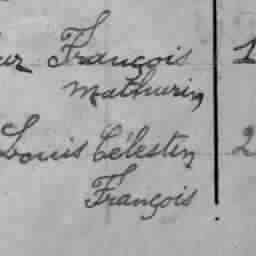 François 1
Mathurin
Louis Célestin 2
François